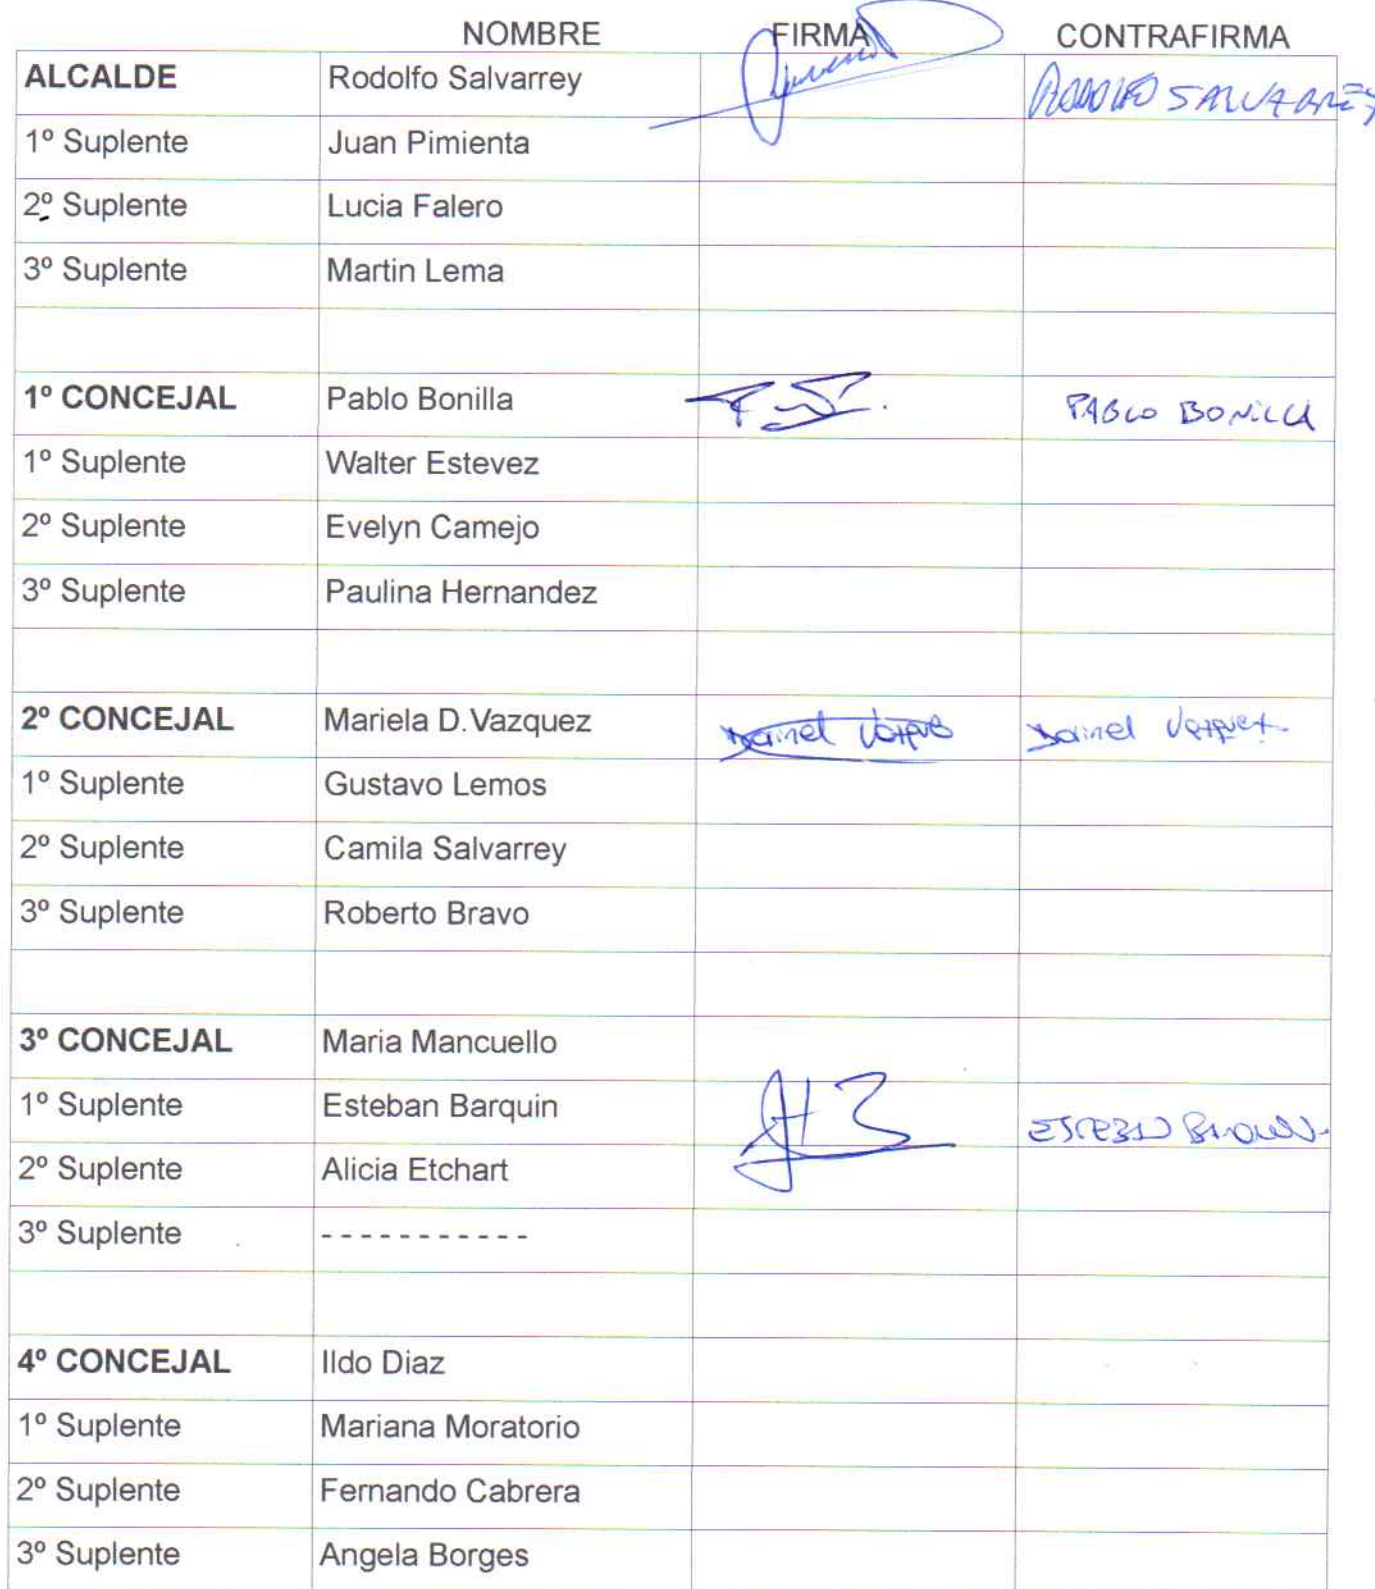 NOMBRE FIRMA CONTRAFIRMA
ALCALDE Rodolfo Salvarrey RODOLFO SALVARREY
1º Suplente Juan Pimienta
2º Suplente Lucia Falero
3º Suplente Martin Lema
1º CONCEJAL Pablo Bonilla PABLO BONILLA
1º Suplente Walter Estevez
2º Suplente Evelyn Camejo
3º Suplente Paulina Hernandez
2º CONCEJAL Mariela D.Vazquez Vazquez
1º Suplente Gustavo Lemos
2º Suplente Camila Salvarrey
3º Suplente Roberto Bravo
3º CONCEJAL Maria Mancuello
1º Suplente Esteban Barquin ESTEBAN
2º Suplente Alicia Etchart
3º Suplente - - - - - - - - - - -
4º CONCEJAL Ildo Diaz
1º Suplente Mariana Moratorio
2º Suplente Fernando Cabrera
3º Suplente Angela Borges